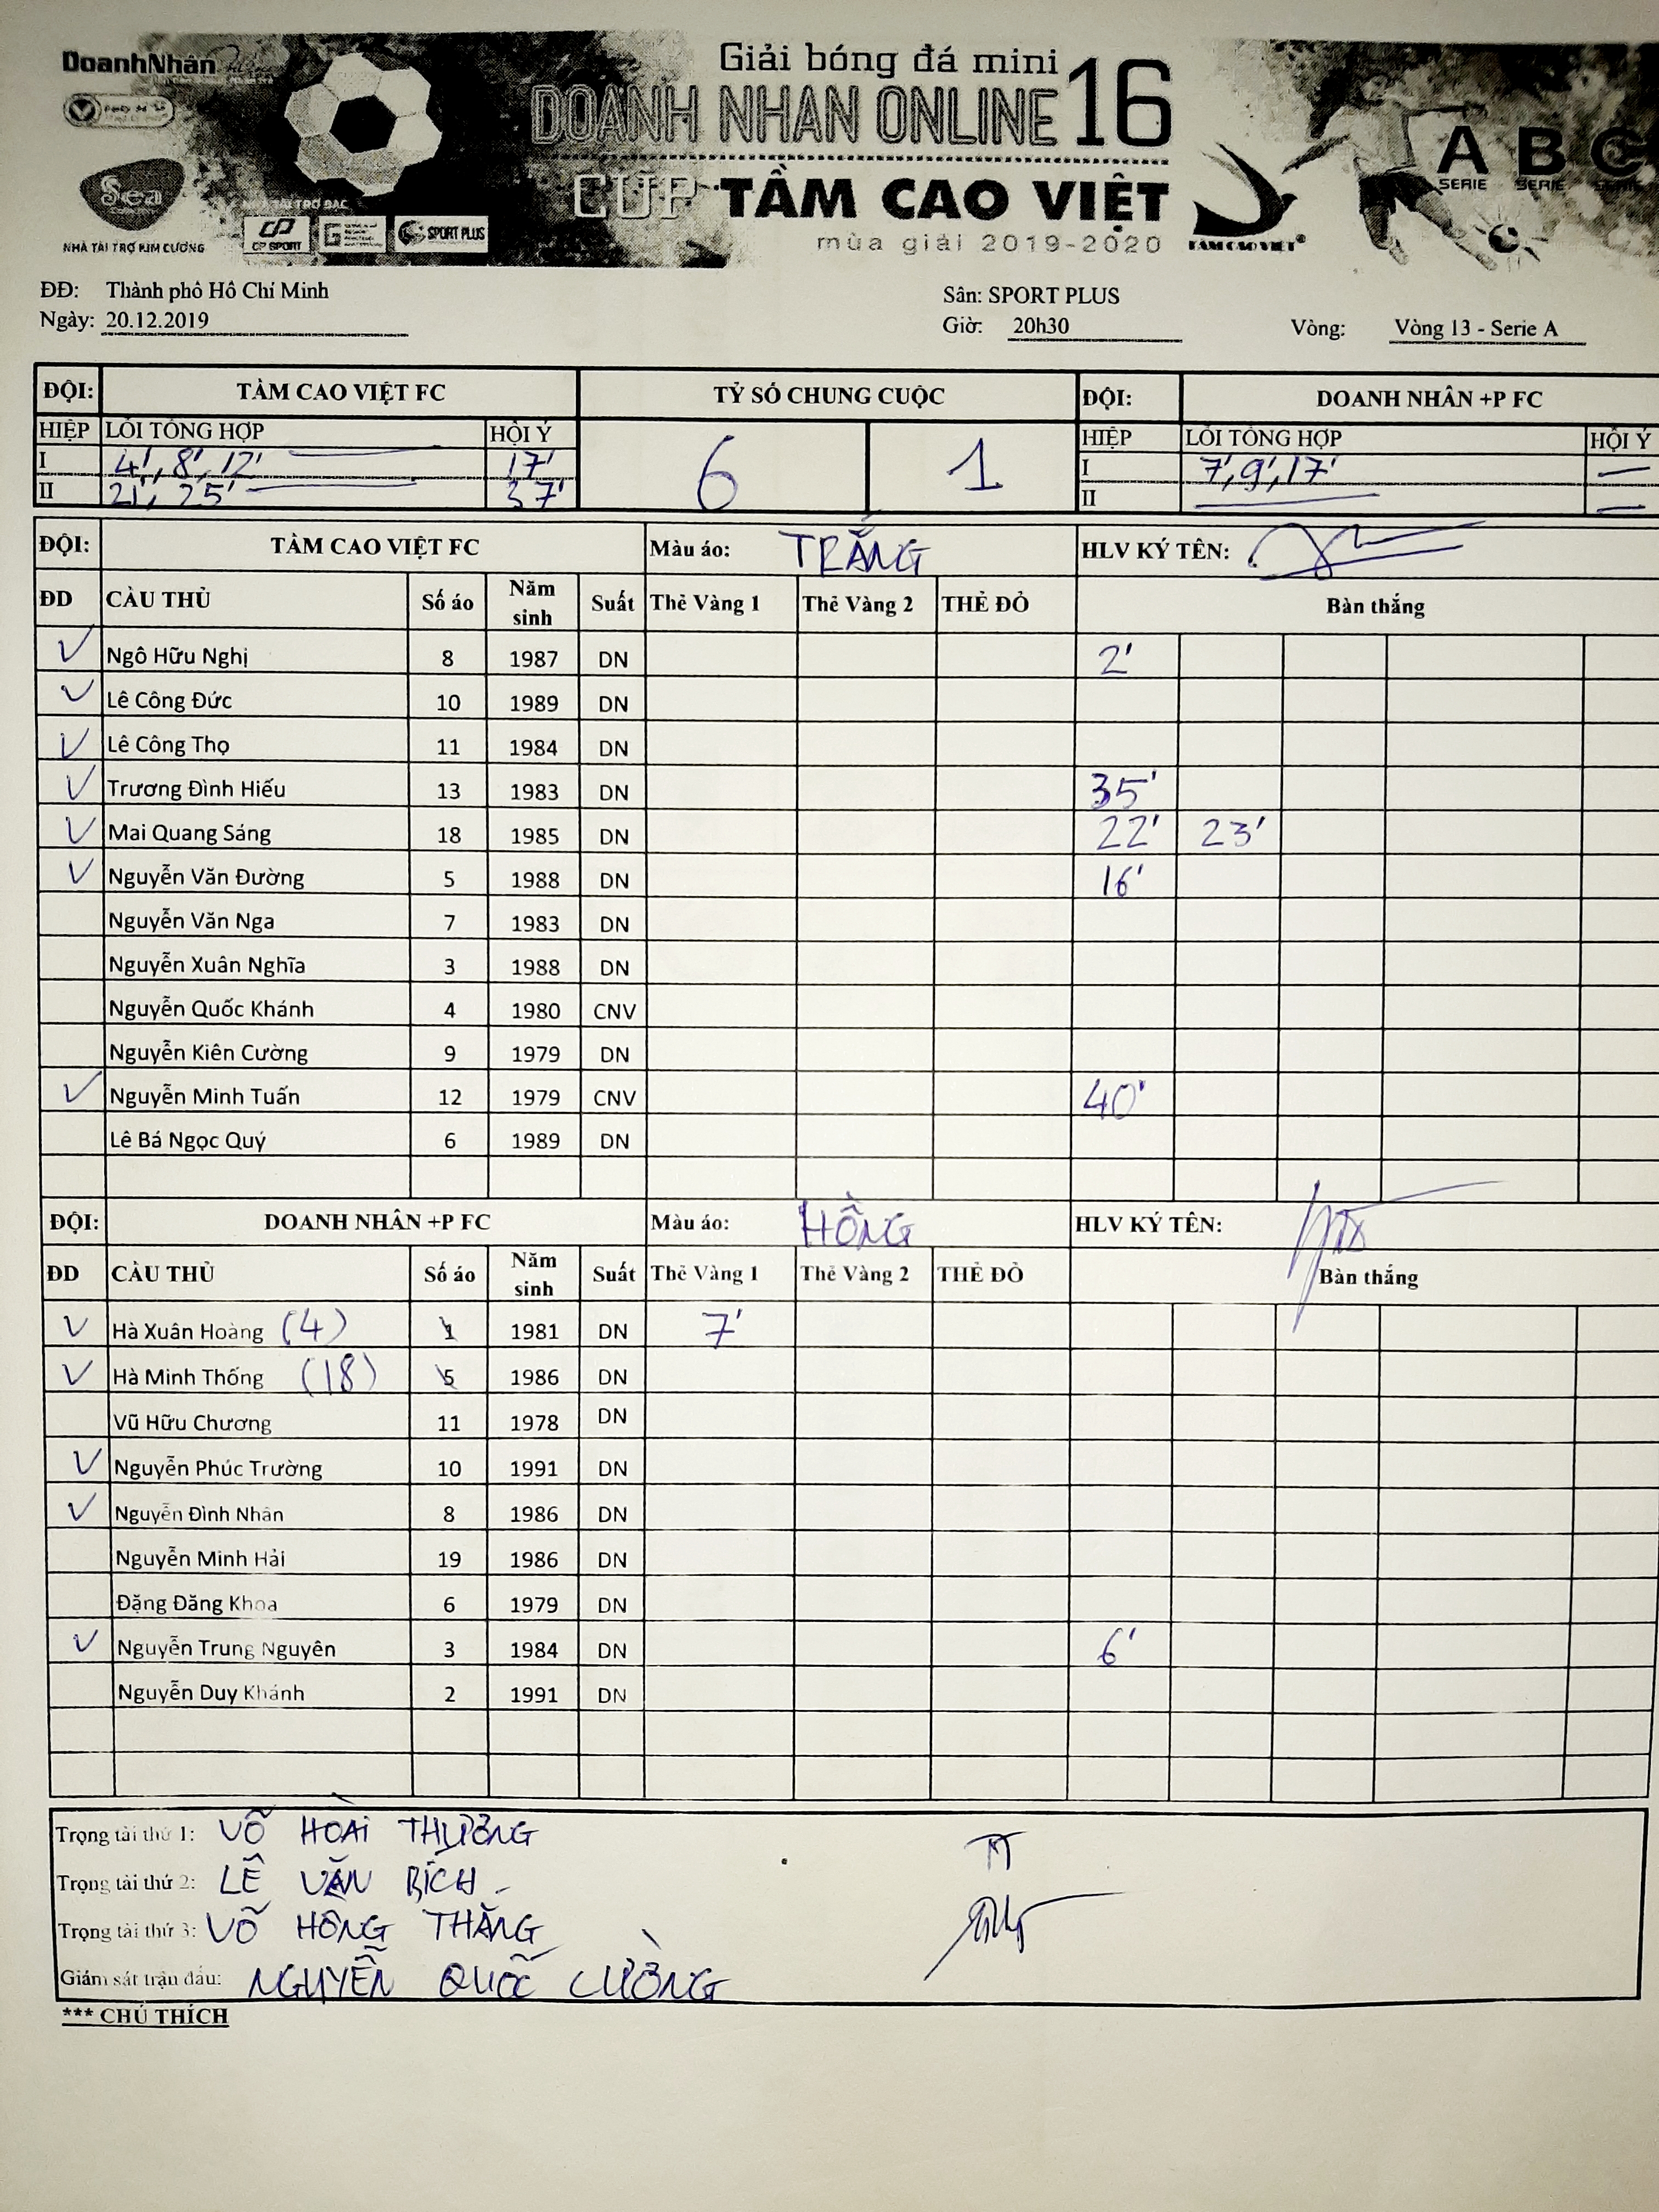 DoanhNhân
Giải bóng đá mini
DOANH NHAN ONLINE 16
CUP TẦM CAO VIỆT
mùa giải 2019-2020
Sea
NHÀ TÀI TRỢ KIM CƯƠNG
NHÀ TÀI TRỢ BẠC
CP SPORT
SPORT PLUS
TẦM CAO VIỆT
A B C
SERIE SERIE SERIE
ĐĐ: Thành phố Hồ Chí Minh Sân: SPORT PLUS
Ngày: 20.12.2019 Giờ: 20h30 Vòng: Vòng 13 - Serie A
ĐỘI: TẦM CAO VIỆT FC TỶ SỐ CHUNG CUỘC ĐỘI: DOANH NHÂN +P FC
HIỆP LỖI TỔNG HỢP HỘI Ý 6 1 HIỆP LỖI TỔNG HỢP HỘI Ý
I 4', 8', 12' 17' I 7', 9', 17' —
II 21', 25' 37' II —
ĐỘI: TẦM CAO VIỆT FC Màu áo: TRẮNG HLV KÝ TÊN:
ĐD CẦU THỦ Số áo Năm sinh Suất Thẻ Vàng 1 Thẻ Vàng 2 THẺ ĐỎ Bàn thắng
✓ Ngô Hữu Nghị 8 1987 DN 2'
✓ Lê Công Đức 10 1989 DN
✓ Lê Công Thọ 11 1984 DN
✓ Trương Đình Hiếu 13 1983 DN 35'
✓ Mai Quang Sáng 18 1985 DN 22' 23'
✓ Nguyễn Văn Đường 5 1988 DN 16'
Nguyễn Văn Nga 7 1983 DN
Nguyễn Xuân Nghĩa 3 1988 DN
Nguyễn Quốc Khánh 4 1980 CNV
Nguyễn Kiên Cường 9 1979 DN
✓ Nguyễn Minh Tuấn 12 1979 CNV 40'
Lê Bá Ngọc Quý 6 1989 DN
ĐỘI: DOANH NHÂN +P FC Màu áo: HỒNG HLV KÝ TÊN:
ĐD CẦU THỦ Số áo Năm sinh Suất Thẻ Vàng 1 Thẻ Vàng 2 THẺ ĐỎ Bàn thắng
✓ Hà Xuân Hoàng (4) 1 1981 DN 7'
✓ Hà Minh Thống (18) 5 1986 DN
Vũ Hữu Chương 11 1978 DN
✓ Nguyễn Phúc Trường 10 1991 DN
✓ Nguyễn Đình Nhân 8 1986 DN
Nguyễn Minh Hải 19 1986 DN
Đặng Đăng Khoa 6 1979 DN
✓ Nguyễn Trung Nguyên 3 1984 DN 6'
Nguyễn Duy Khánh 2 1991 DN
Trọng tài thứ 1: VÕ HOÀI THƯƠNG
Trọng tài thứ 2: LÊ VĂN BÍCH
Trọng tài thứ 3: VÕ HỒNG THẮNG
Giám sát trận đấu: NGUYỄN QUỐC CƯỜNG
*** CHÚ THÍCH